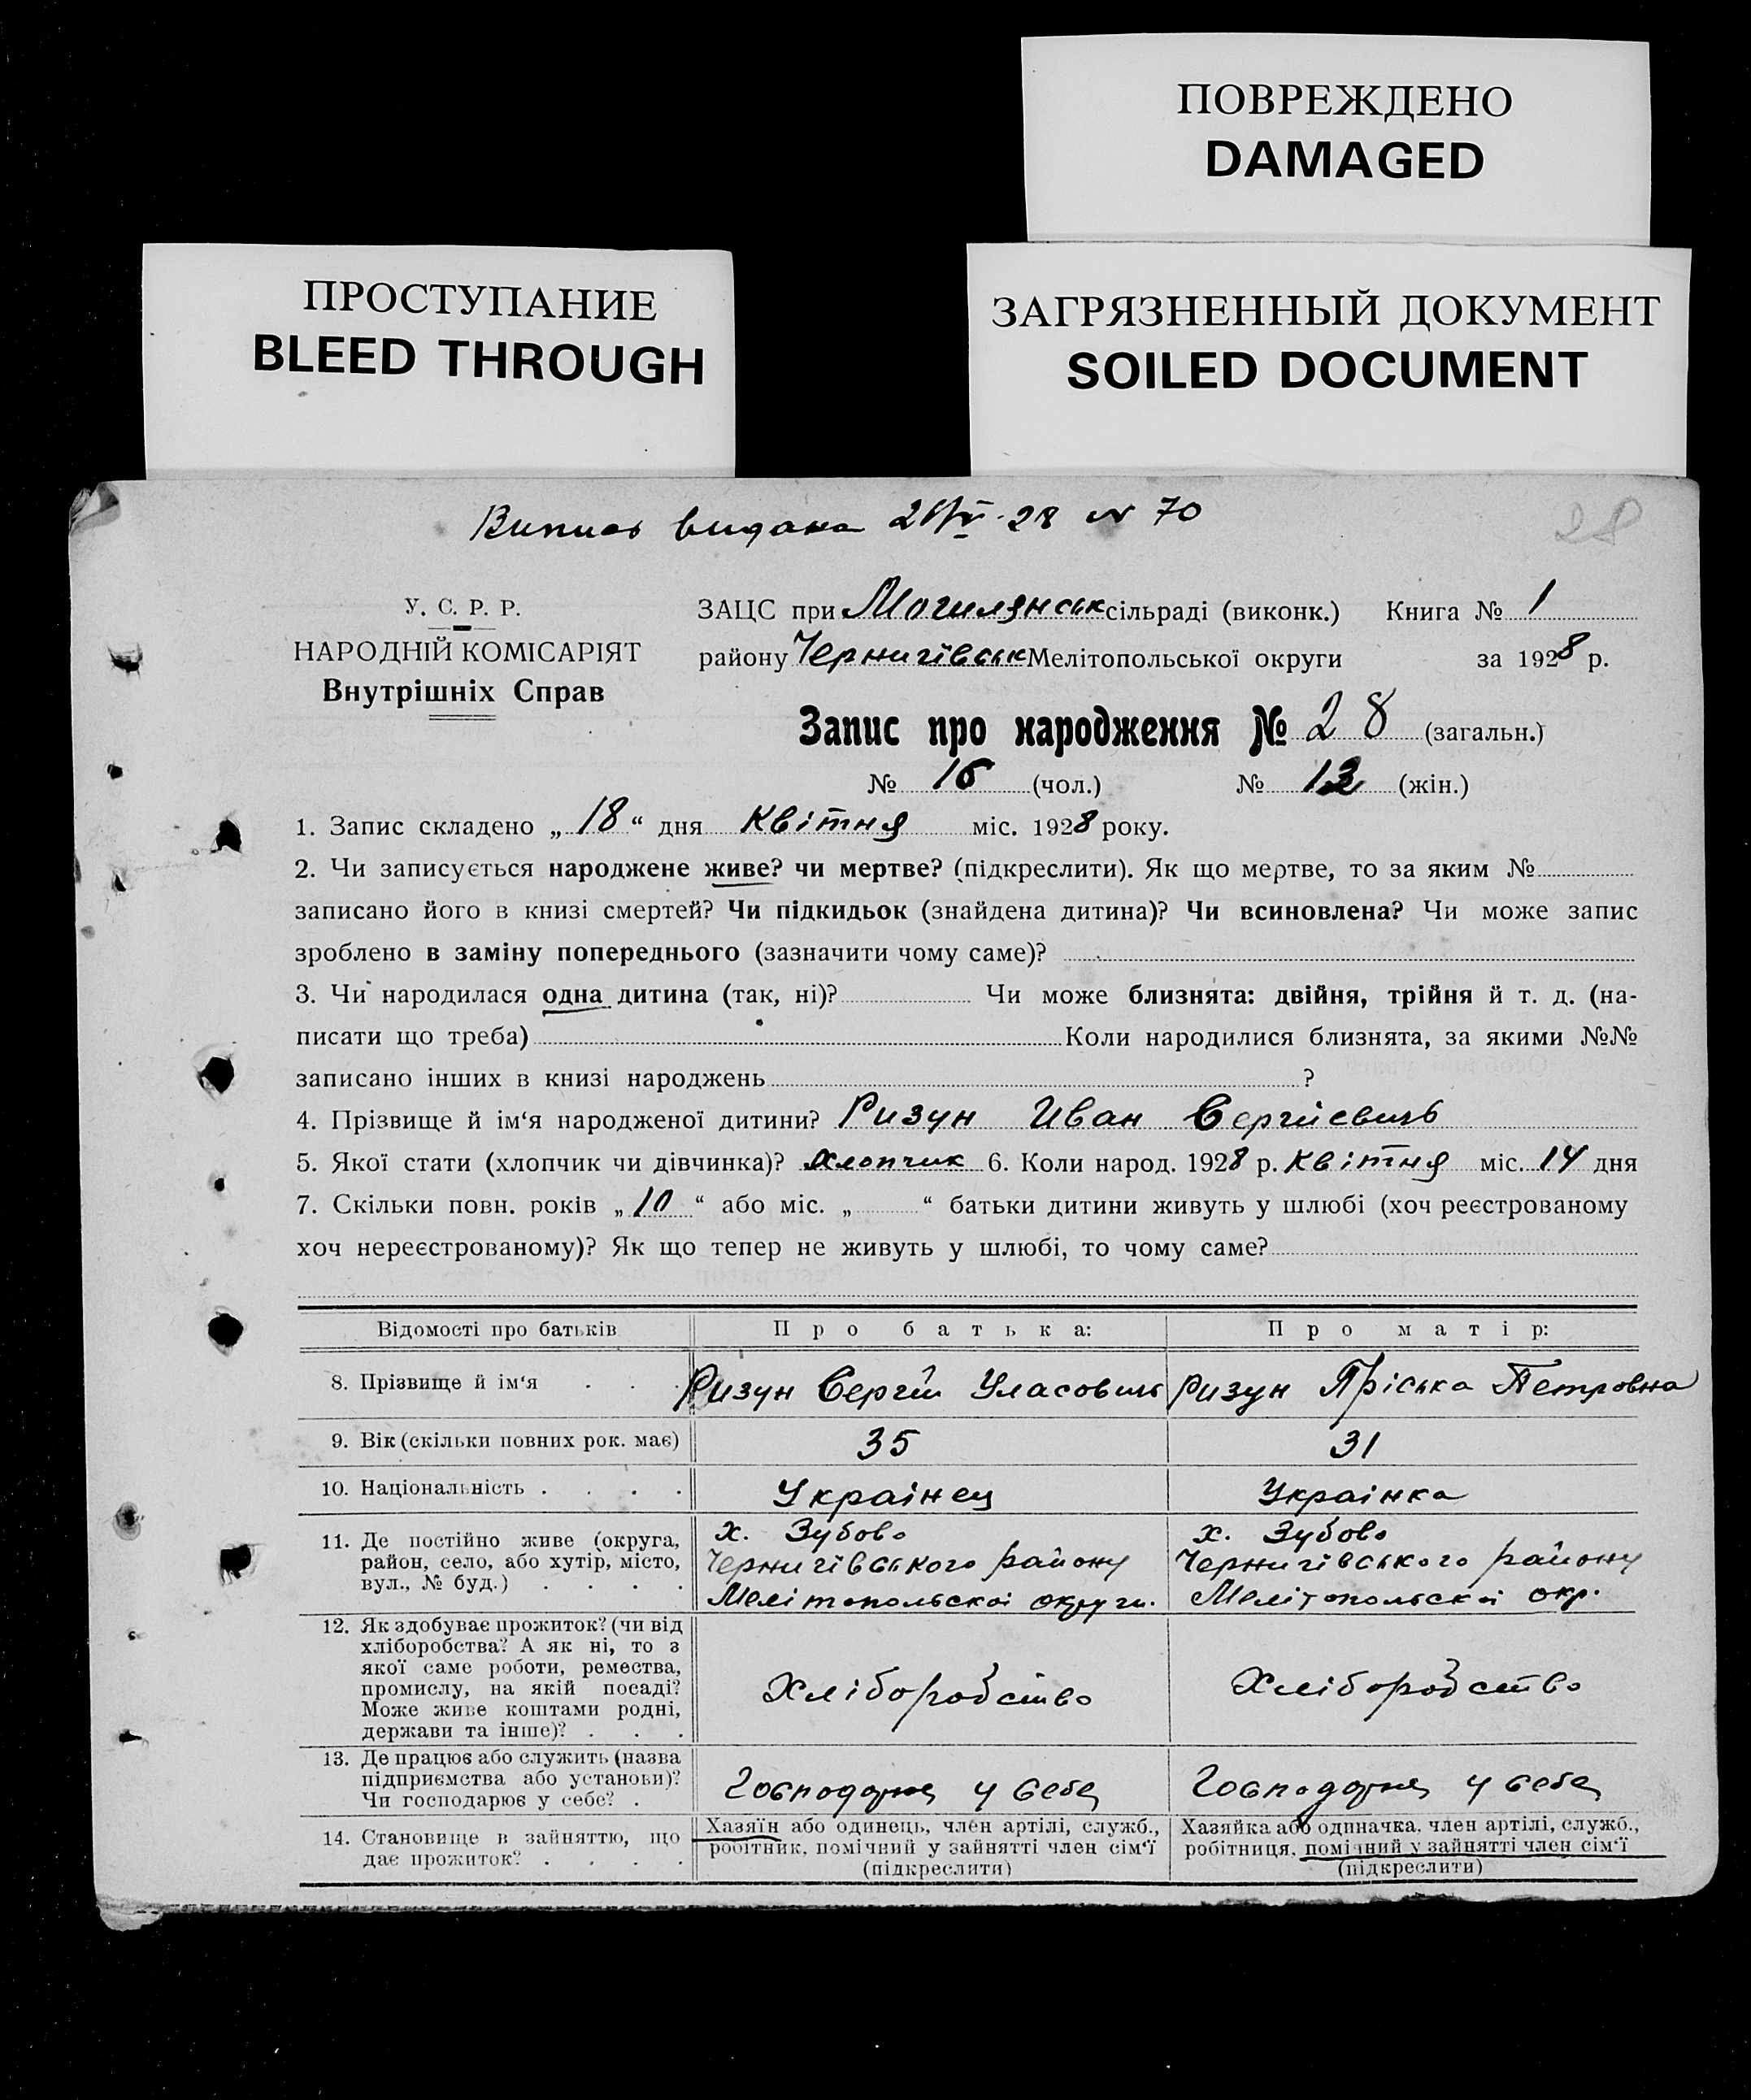 ПОВРЕЖДЕНО
DAMAGED
ПРОСТУПАНИЕ
BLEED THROUGH
ЗАГРЯЗНЕННЫЙ ДОКУМЕНТ
SOILED DOCUMENT
Випись видана 28 № 70
28
У. С. Р. Р.
НАРОДНІЙ КОМІСАРІЯТ
Внутрішніх Справ
ЗАЦС при Могилянськ сільраді (виконк.) Книга № 1
району Чернигівськ Мелітопольської округи за 1928 р.
Запис про народження № 28 (загальн.)
№ 16 (чол.) № 12 (жін.)
1. Запис складено „18“ дня Квітня міс. 1928 року.
2. Чи записується народжене живе? чи мертве? (підкреслити). Як що мертве, то за яким №
записано його в книзі смертей? Чи підкидьок (знайдена дитина)? Чи всиновлена? Чи може запис
зроблено в заміну попереднього (зазначити чому саме)?
3. Чи народилася одна дитина (так, ні)? Чи може близнята: двійня, трійня й т. д. (на-
писати що треба) Коли народилися близнята, за якими №№
записано інших в книзі народжень ?
4. Прізвище й ім‘я народженої дитини? Ризун Иван Сергіевичь
5. Якої стати (хлопчик чи дівчинка)? Хлопчик 6. Коли народ. 1928 р. Квітня міс. 14 дня
7. Скільки повн. років „10“ або міс. „ “ батьки дитини живуть у шлюбі (хоч реєстрованому
хоч нереєстрованому)? Як що тепер не живуть у шлюбі, то чому саме?
Відомості про батьків Про батька: Про матір:
8. Прізвище й ім‘я . . . Ризун Сергій Уласовичь Ризун Пріська Петровна
9. Вік (скільки повних рок. має) 35 31
10. Національність . . . . Украінец Украінка
11. Де постійно живе (округа,
район, село, або хутір, місто,
вул., № буд.) . . . .
х. Зубово
Чернигівського району
Мелітопольскоі округи.
х. Зубово
Чернигівського району
Мелітопольскоі окр.
12. Як здобуває прожиток? (чи від
хліборобства? А як ні, то з
якої саме роботи, ремества,
промислу, на якій посаді?
Може живе коштами родні,
держави та інше)? . . .
Хліборобство
Хліборобство
13. Де працює або служить (назва
підприємства або установи)?
Чи господарює у себе? .
Господарює у себе
Господарює у себе
14. Становище в зайняттю, що
дає прожиток? . . . .
Хазяїн або одинець, член артілі, служб.,
робітник, помічний у зайнятті член сім‘ї
(підкреслити)
Хазяйка або одиначка, член артілі, служб.,
робітниця, помічний у зайнятті член сім‘ї
(підкреслити)